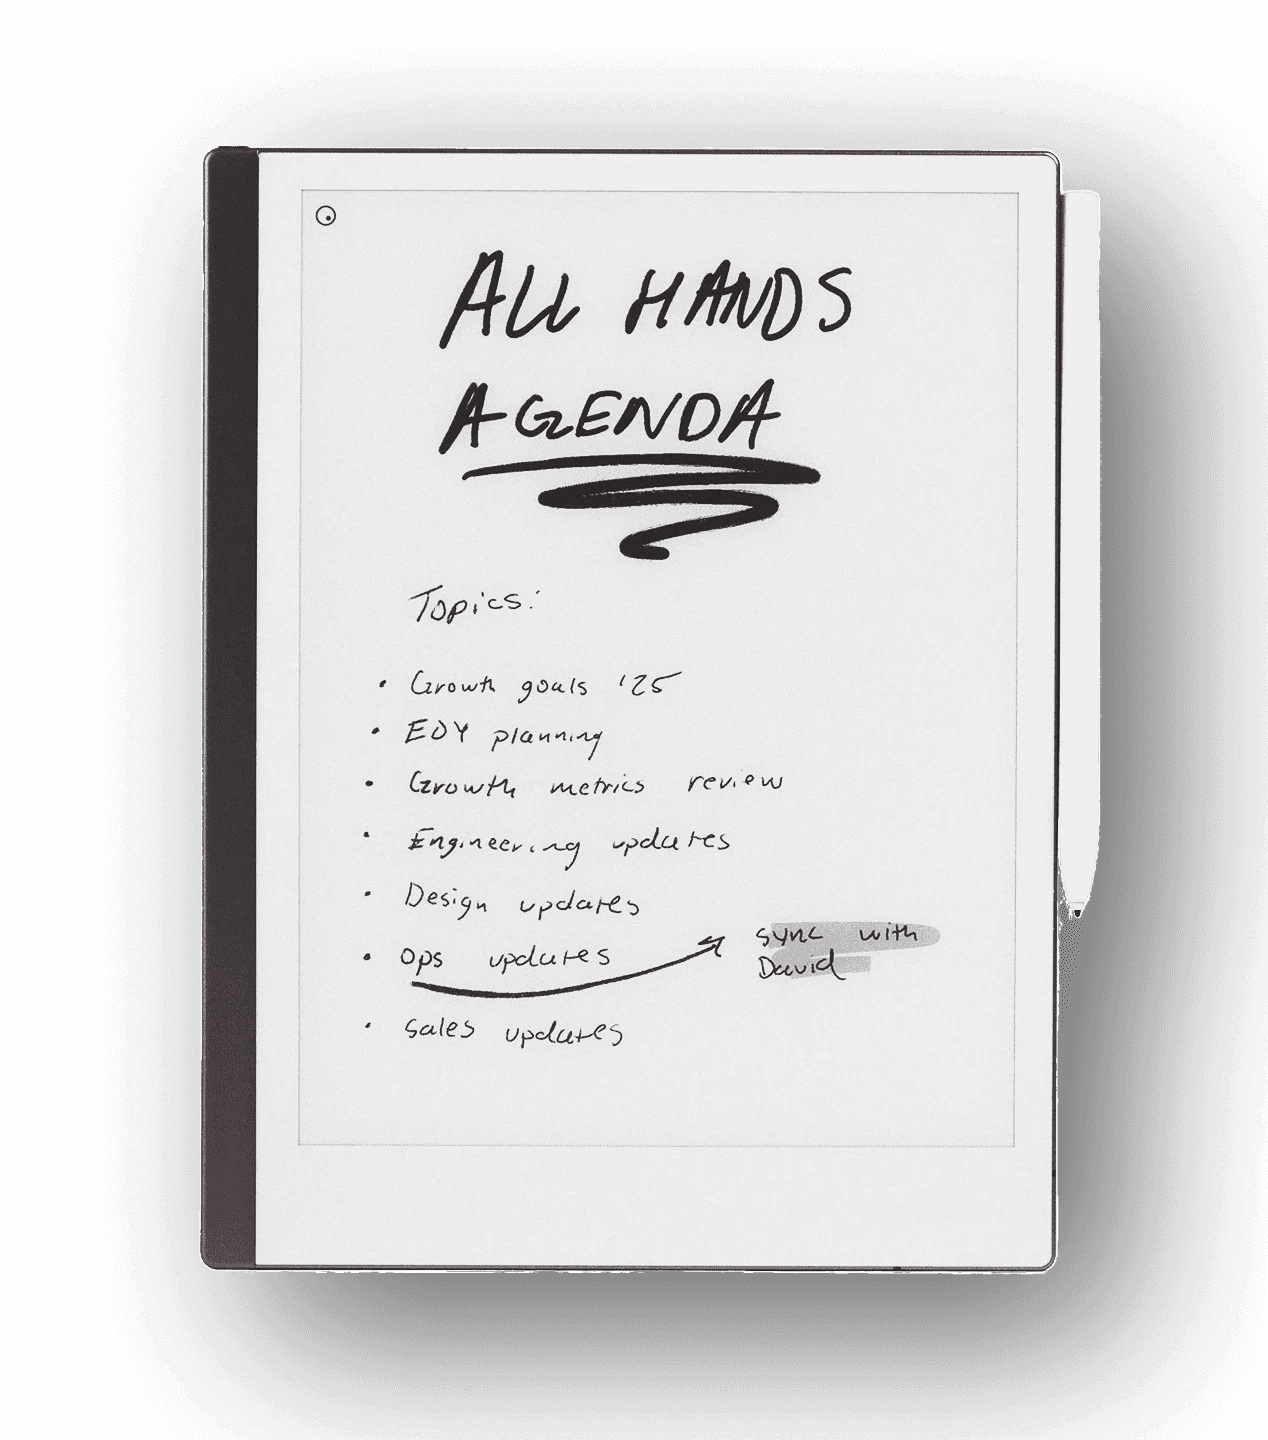 ALL HANDS
AGENDA
Topics:
• Growth goals '25
• EOY planning
• Growth metrics review
• Engineering updates
• Design updates
• Ops updates
sync with
David
• Sales updates